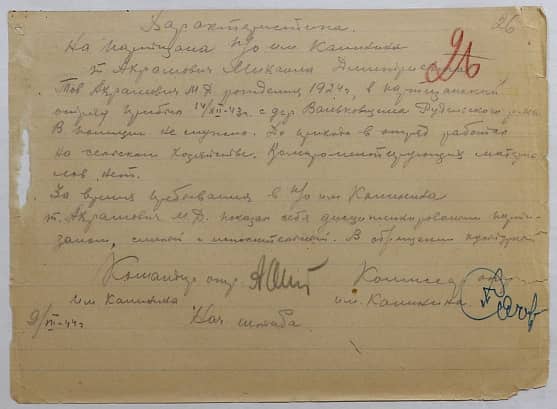 26
Характеристика.
26
На партизана п/о им Калинина
т. Ахрамович Михаила Дмитриевича
Тов Ахрамович М.Д. рождения 1924г, в партизанский
отряд прибыл 14/XII-43г. с дер. Валь Руденского р-на
В полиции не служил. До прихода в отряд работал
на сельском хозяйстве. Компрометирующих матери-
лов нет.
За время пребывания в п/о им Калинина
т. Ахрамович М.Д. показал себя дисциплинированным парти-
заном, смелый и исполнительный. В обращении культурный
Командир отр. Комиссар
им Калинина им. Калинина
9/VII-44г Нач штаба.